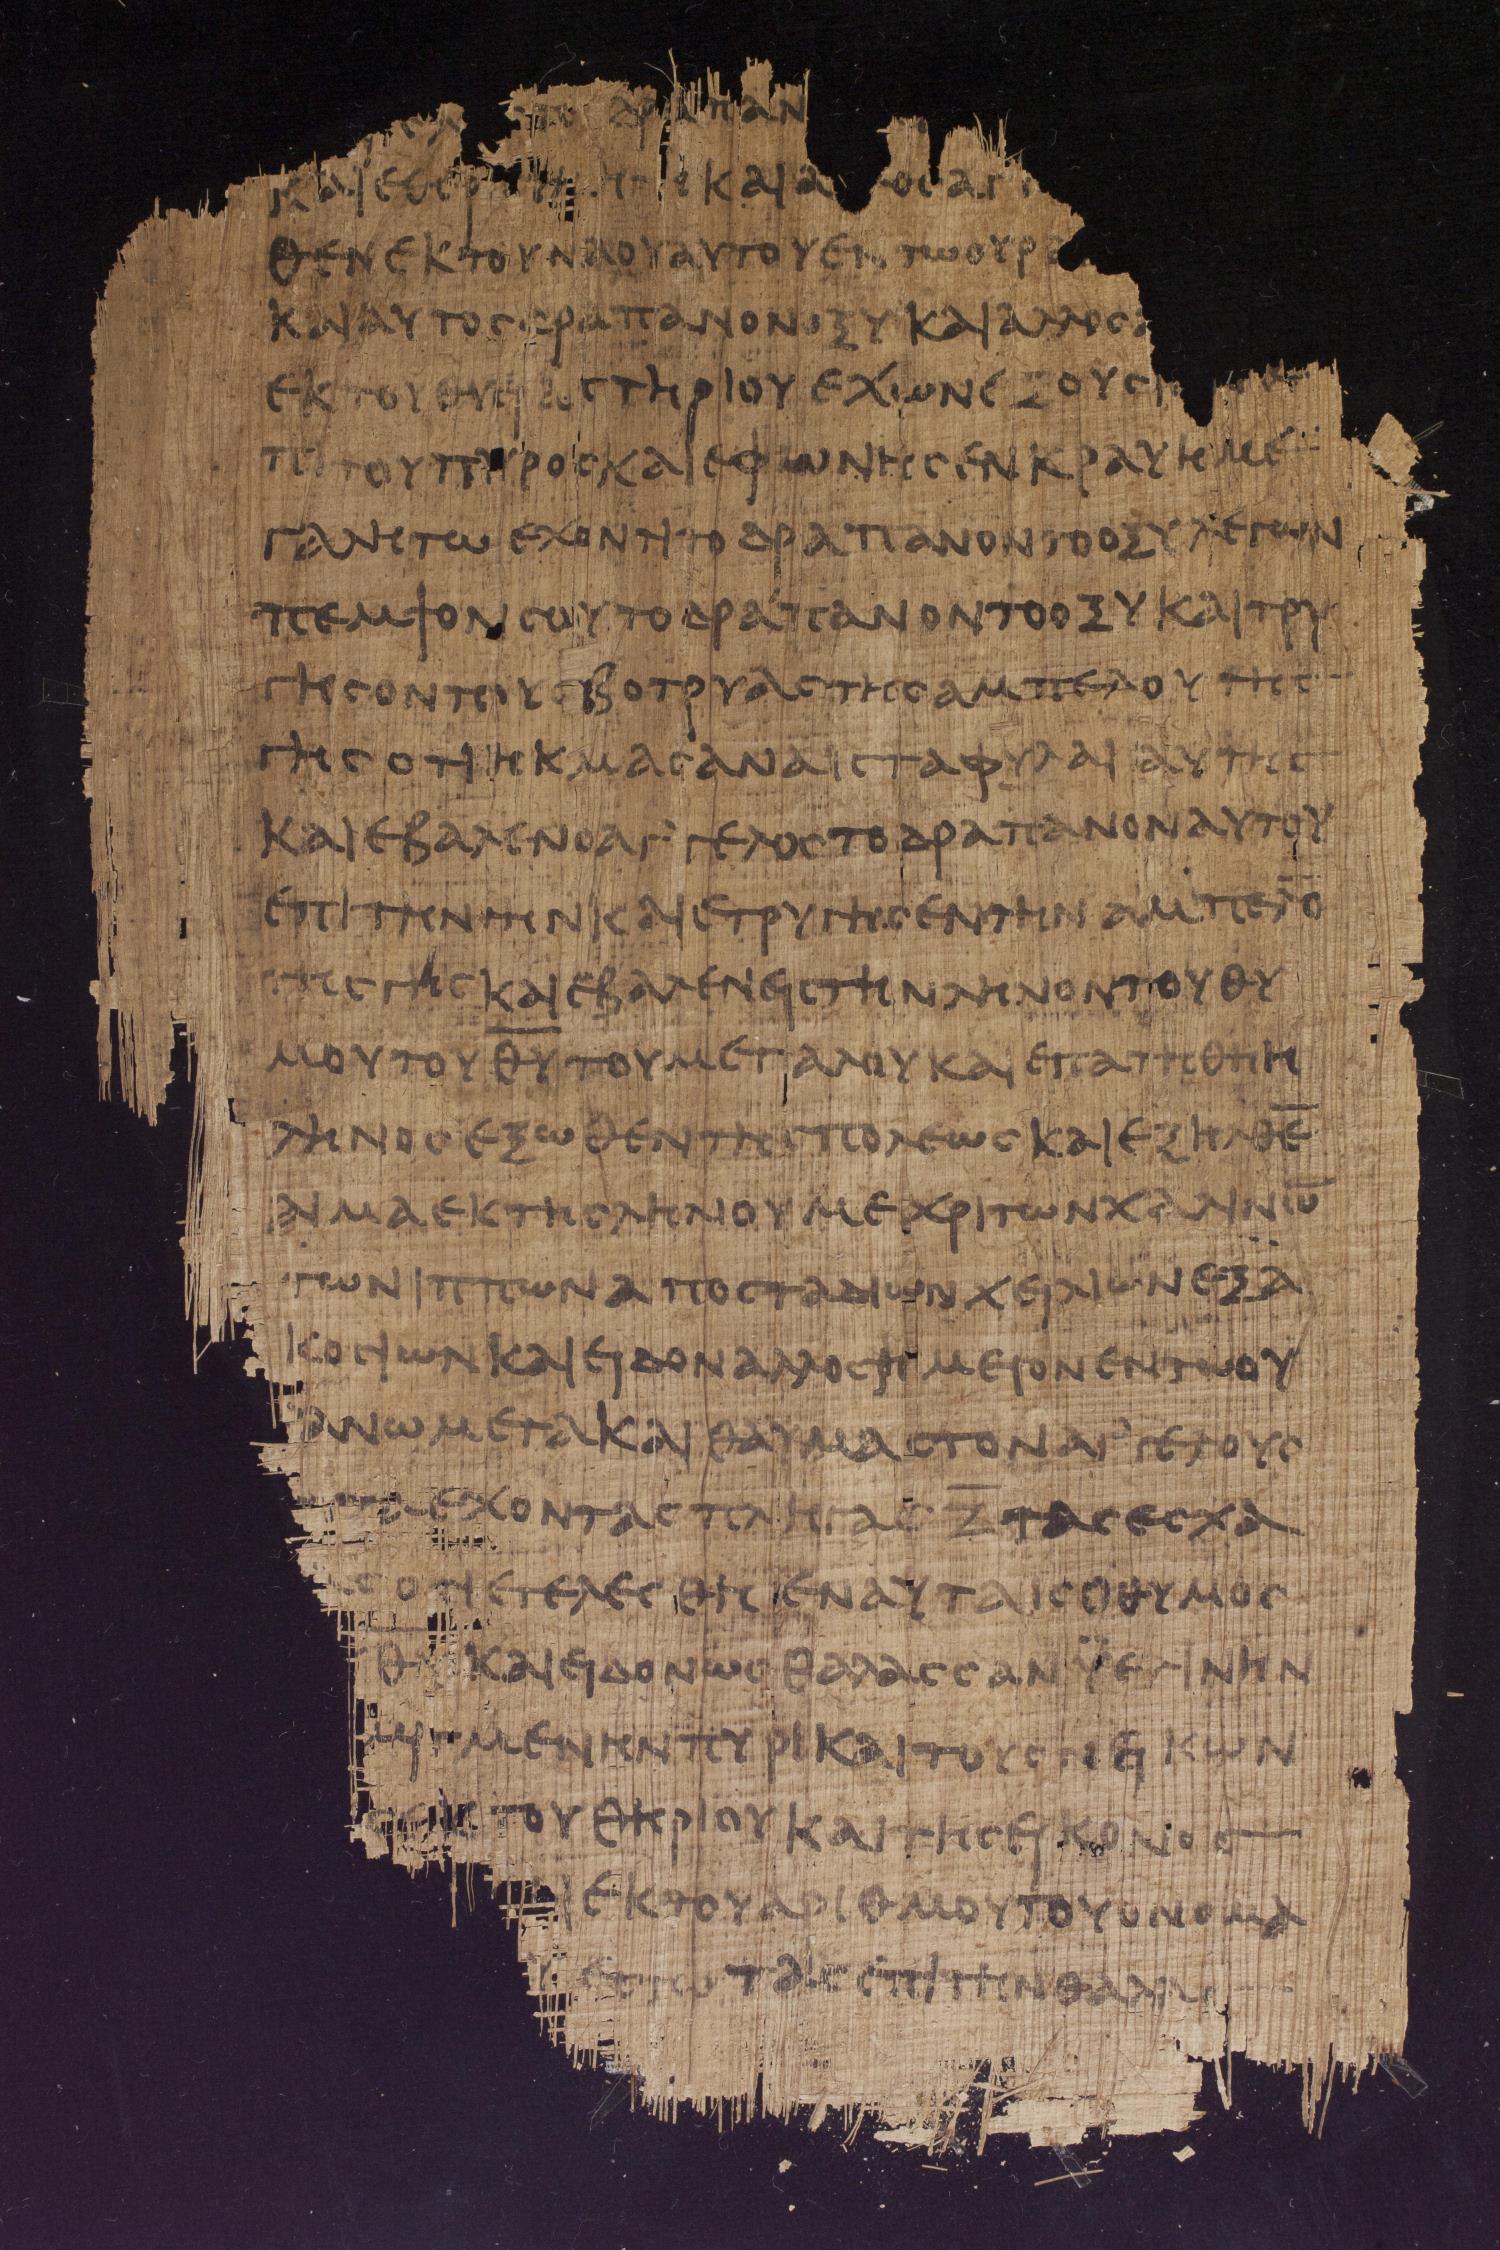 δραπαν
και
θενεκτουναουαυτουεντωουρα
καιαυτοςδραπανονοξυκαιαλλος
εκτουθυσιαστηριουεχωνεξους
πιτουπυροςκαιεφωνησενκραυημε
γαλητωεχοντητοδραπανοντοοξυλεγων
πεμψονσουτοδραπανοντοοξυκαιτρυ
γησοντουςβοτρυαςτηςαμπελουτης
γηςοτιηκμασαναισταφυλαιαυτης
καιεβαλενοαγ᾽γελοςτοδραπανοναυτου
επιτηνγηνκαιετρυγησεντηναμπελο̅
τηςγηςκαιεβαλενειςτηνληνοντουθυ
μουτουθ̅υ̅τουμεγαλουκαιεπατηθηη
ληνοςεξωθεντηςπολεωςκαιεξηλθε̅
αιμαεκτηςληνουμεχριτωνχαλινω̅
τωνιππωναποσταδιωνχειλιωνεξα
κοσιωνκαιειδοναλλοσημειονεντωου
ανωμεγακαιθαυμαστοναγ᾽γελους
εχονταςπληγαςζ̅ταςεσχα
οτιετελεσθηεναυταιςοθυμος
θ̅υ̅καιειδονωςθαλασσανϋελινην
μενηνπυρικαιτουςνεικων
εκτουθηριουκαιτηςεικονος
εκτουαριθμουτουονομα
τωταςεπιτηνθαλας